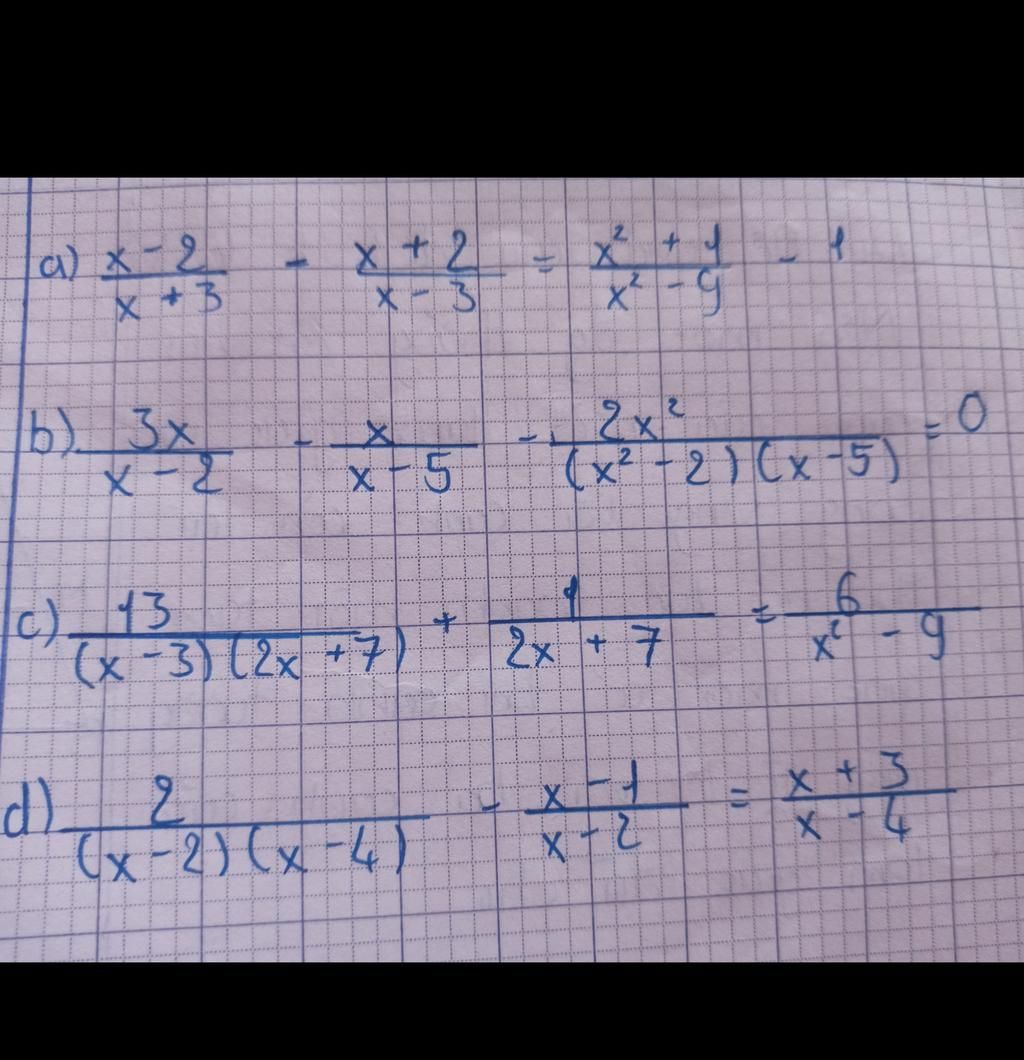 a) (x - 2)/(x + 3) - (x + 2)/(x - 3) = (x² + 1)/(x² - 9) - 1
b) 3x/(x - 2) - x/(x - 5) - 2x²/((x² - 2)(x - 5)) = 0
c) 13/((x - 3)(2x + 7)) + 1/(2x + 7) = 6/(x² - 9)
d) 2/((x - 2)(x - 4)) - (x - 1)/(x - 2) = (x + 3)/(x - 4)